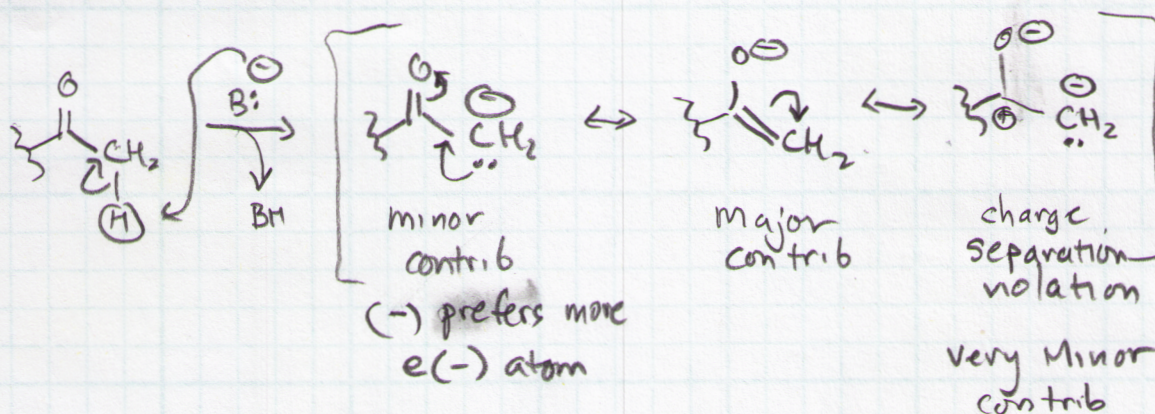 O
CH2
H
B:
⊖
BH
O
⊖
CH2
minor
contrib
(-) prefers more
e(-) atom
O⊖
CH2
Major
contrib
O⊖
⊕
⊖
CH2
charge
separation
violation
very Minor
contrib